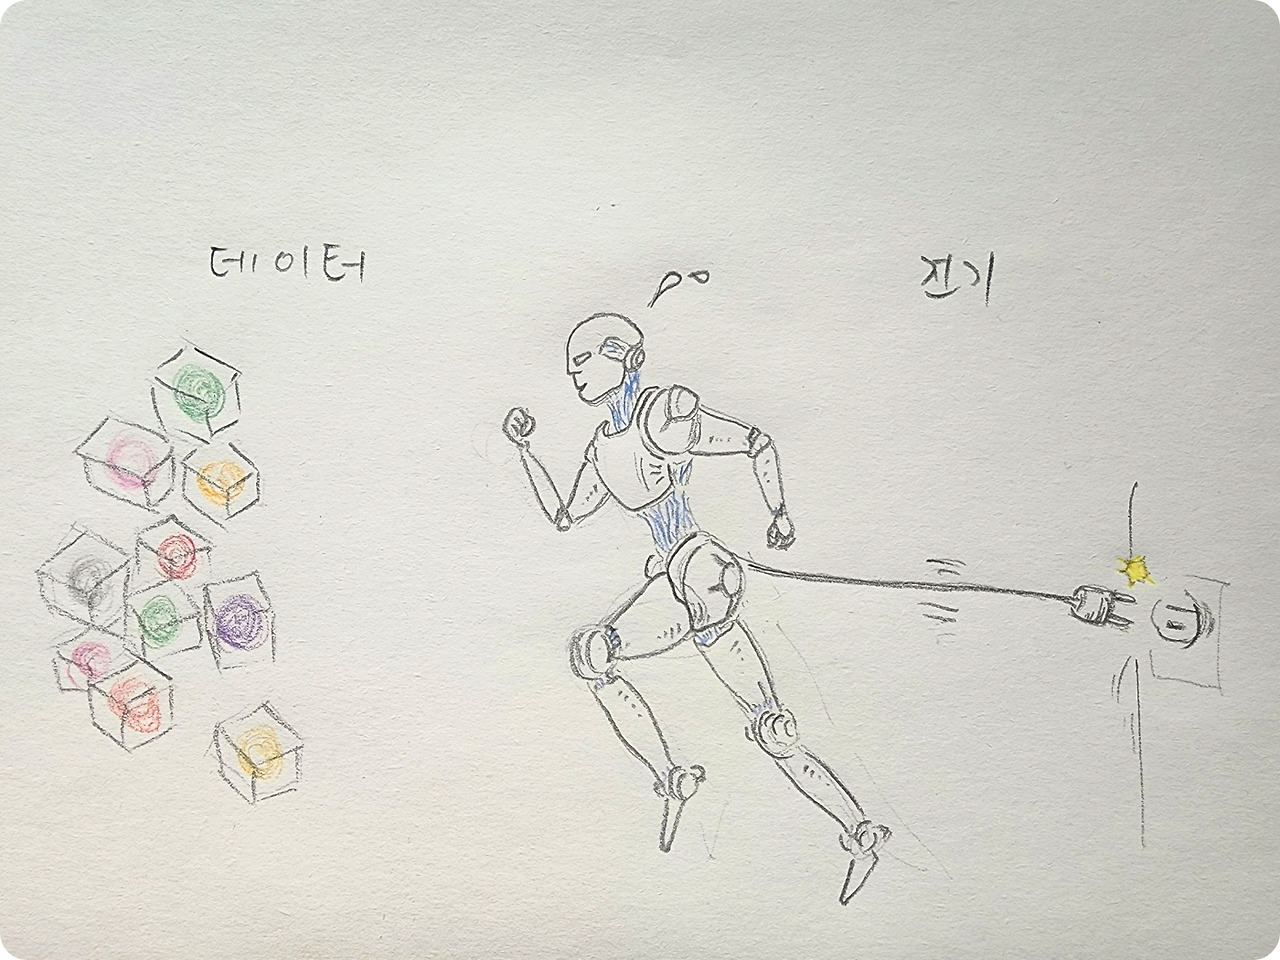 데이터
전기